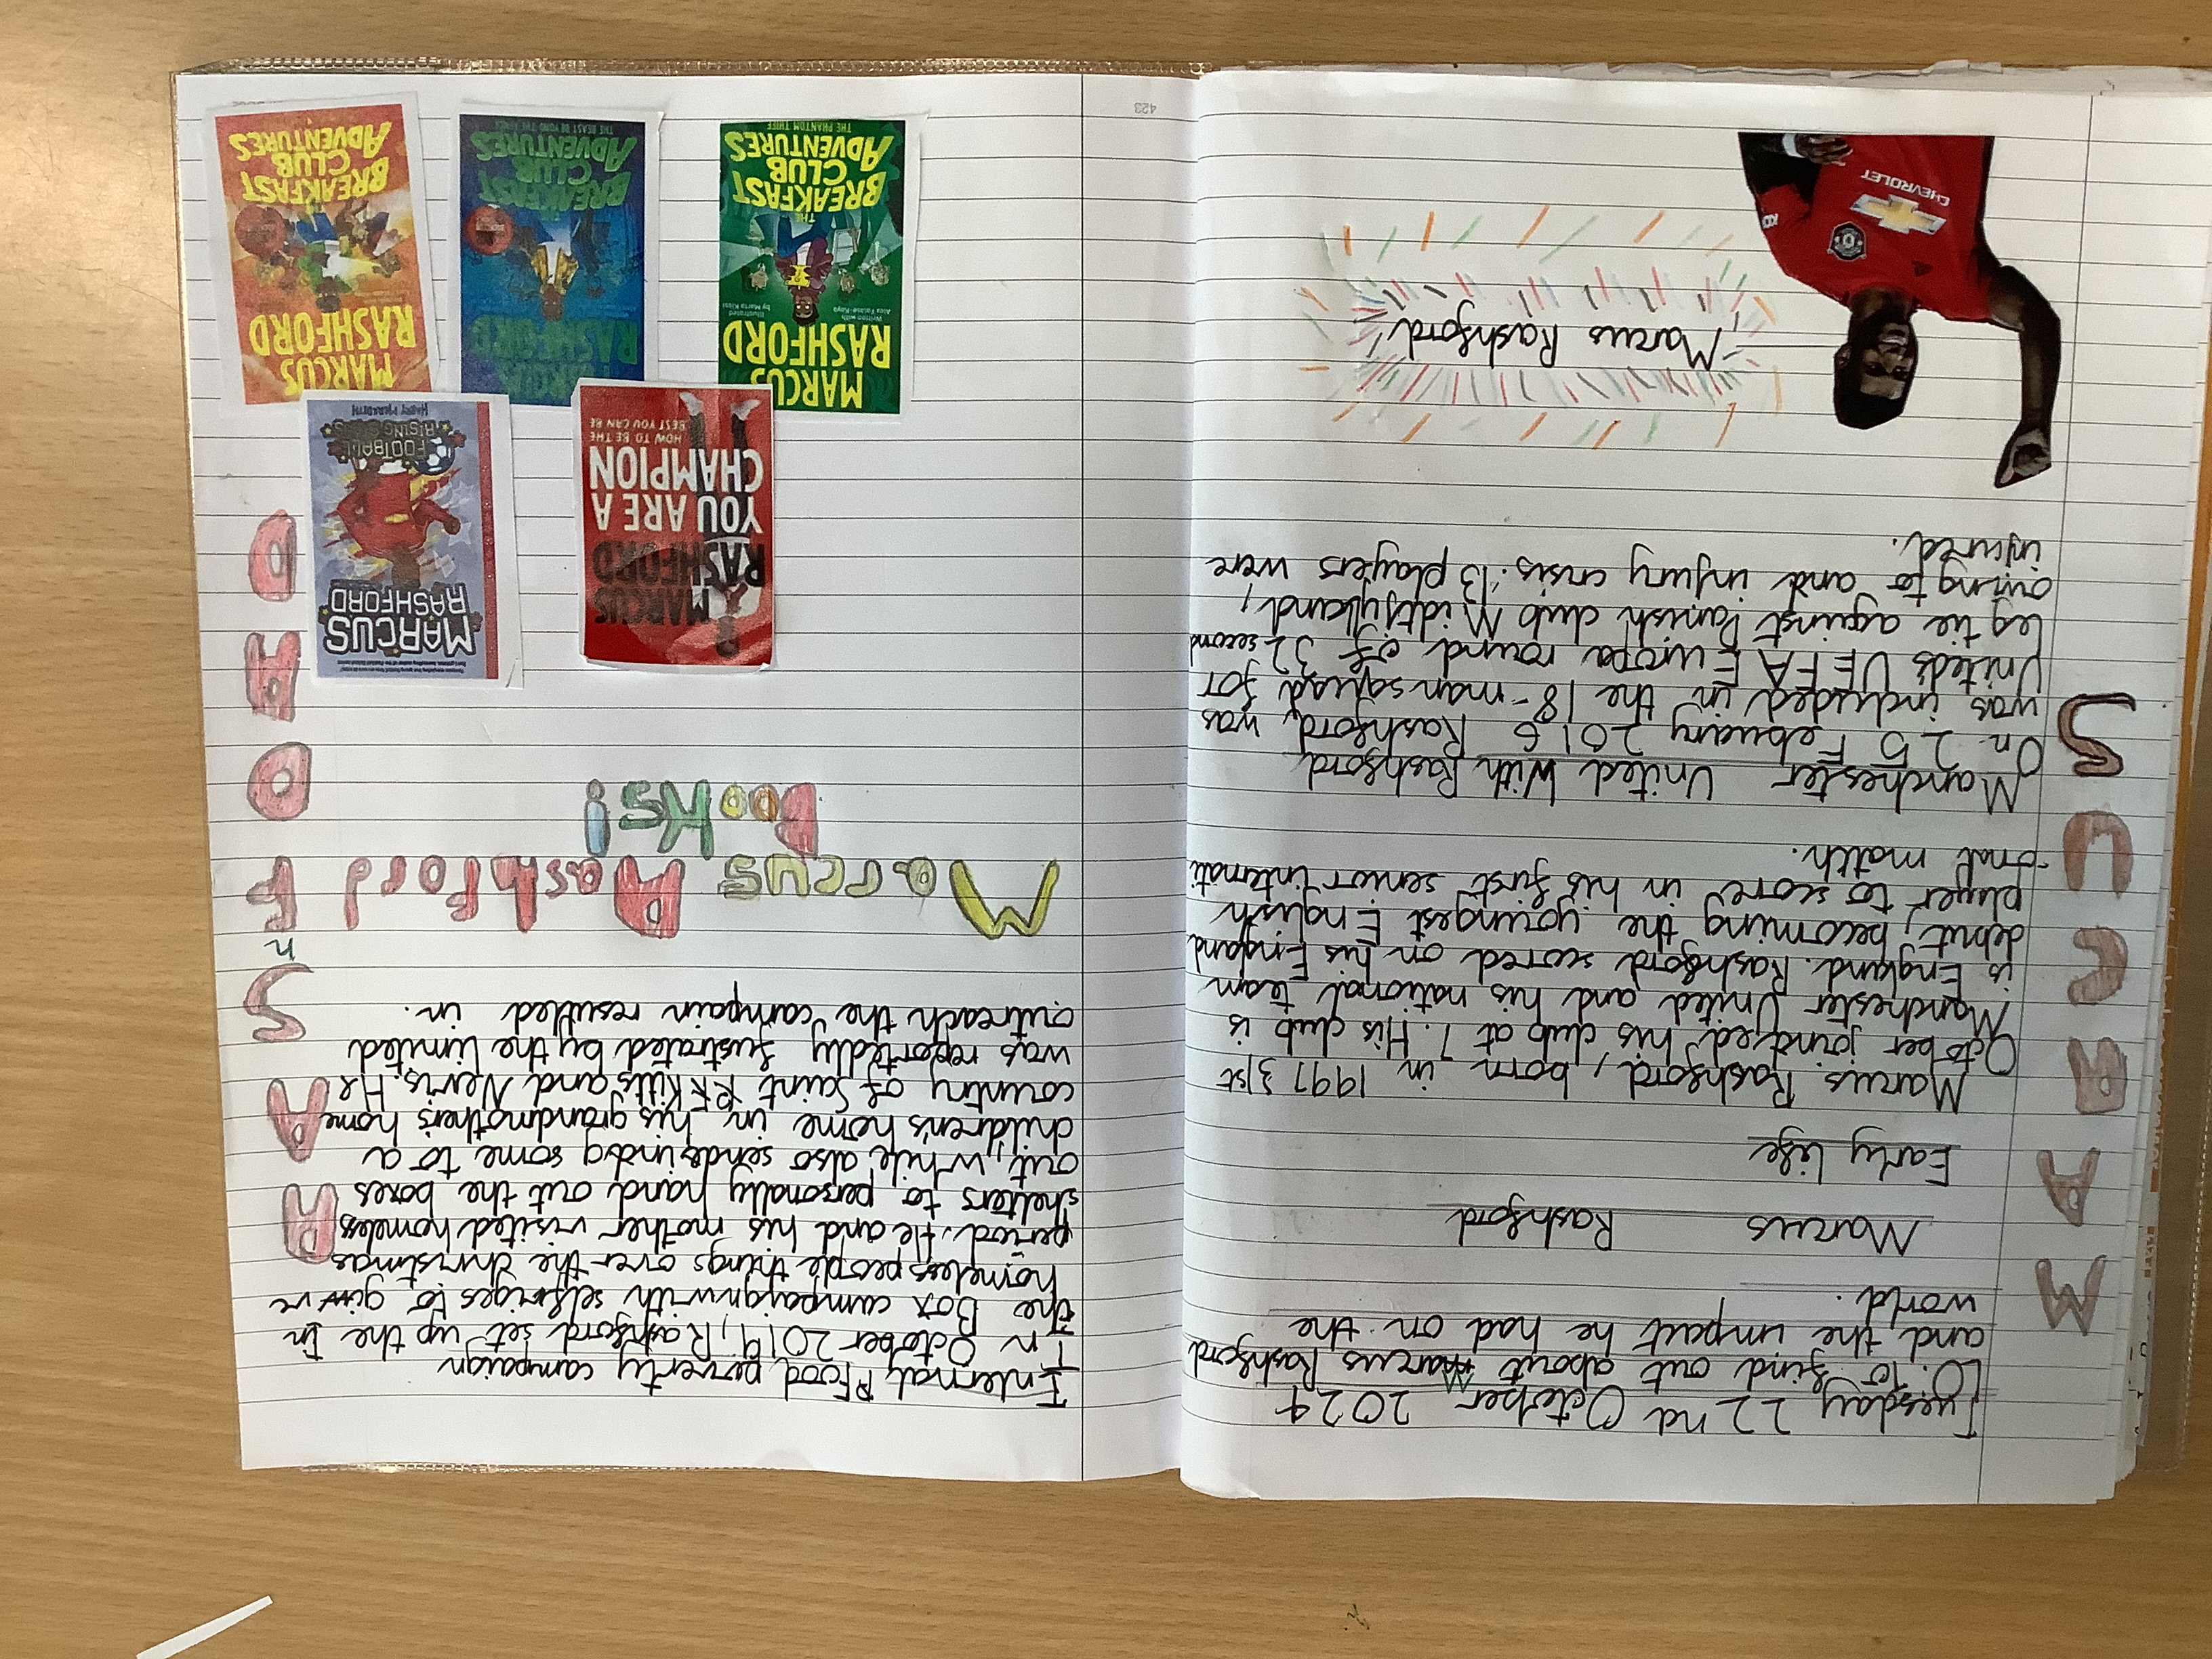 Tuesday 22nd October 2024
LO. To find out about Marcus Rashford
and the impact he had on the
world.
Marcus Rashford
Early life
Marcus Rashford, born in 1997 31st
October joindjed his club at 7. His club is
Manchester United and his national team
is England. Rashford scored on his England
debut, becoming the youngest English
player to score in his first senior internati
-onal match.
Manchester United With Rashford
On 25 Febuary 2016 Rashford, was
was included in the 18-man squad for
United's UEFA Europa round of 32 second
leg tie against Danish club Midtjylland,
owing to and injury crisis. 13 players were
injured.
Marcus Rashford
CHEVROLET
M
A
R
C
U
S
Internal Food perverty campaign
In October 2019, Rashford set up the In
the Box campaign with selfriges to give
homeless people things over the christmas
period. He and his mother visited homeless
shelters to personally hand out the boxes
out, while also sendeindg some to a
children's home in his grandmother's home
country of Saint Kitts and Nevis. He
was reportedly fustrated by the limited
outreach the campain resulted in.
Marcus Rashford
Books!
R
A
S
h
F
O
R
D
MARCUS
RASHFORD
YOU ARE A
CHAMPION
HOW TO BE THE
BEST YOU CAN BE
MARCUS
RASHFORD
FOOTBALL
RISING STARS
HARRY MEREDITH
MARCUS
RASHFORD
Written with
Alex Falase-Koya
Illustrated
by Marta Kissi
THE
BREAKFAST
CLUB
ADVENTURES
THE PHANTOM THIEF
MARCUS
RASHFORD
BREAKFAST
CLUB
ADVENTURES
THE BEAST BEYOND THE FENCE
MARCUS
RASHFORD
BREAKFAST
CLUB
ADVENTURES
423